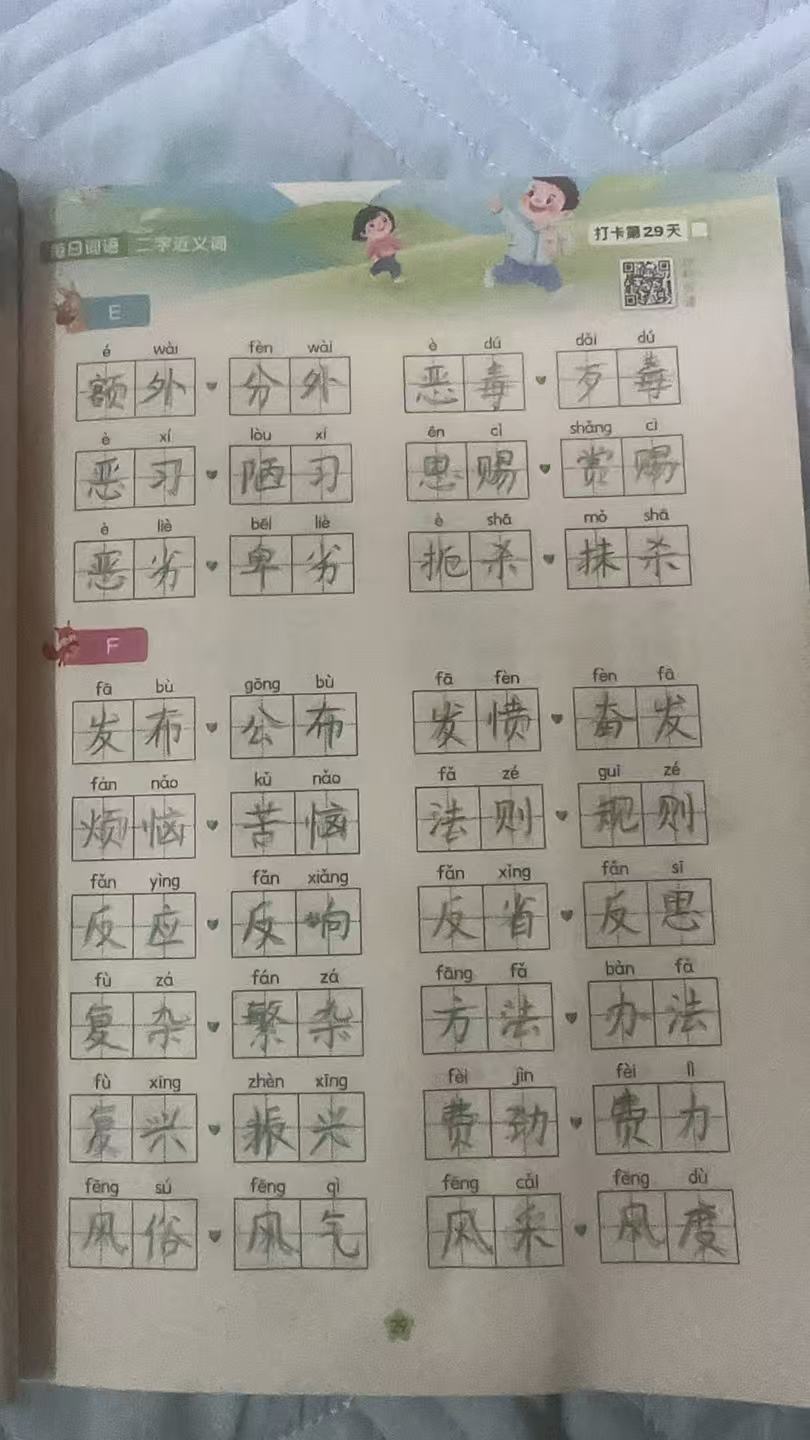 每日词语 二字近义词
打卡第29天
E
é wài fèn wài è dú dǎi dú
额外 分外 恶毒 歹毒
è xí lòu xí ēn cì shǎng cì
恶习 陋习 恩赐 赏赐
è liè bēi liè è shā mǒ shā
恶劣 卑劣 扼杀 抹杀
F
fā bù gōng bù fā fèn fèn fā
发布 公布 发愤 奋发
fán nǎo kǔ nǎo fǎ zé guī zé
烦恼 苦恼 法则 规则
fǎn yìng fǎn xiǎng fǎn xǐng fǎn sī
反应 反响 反省 反思
fù zá fán zá fāng fǎ bàn fǎ
复杂 繁杂 方法 办法
fù xīng zhèn xīng fèi jìn fèi lì
复兴 振兴 费劲 费力
fēng sú fēng qì fēng cǎi fēng dù
风俗 风气 风采 风度
29